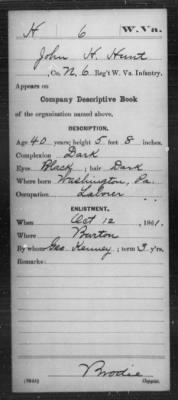 H 6 W. Va.
John H. Hunt
, Co. N, 6 Reg't W. Va. Infantry.
Appears on
Company Descriptive Book
of the organization named above.
DESCRIPTION.
Age 40 years; height 5 feet 8 inches.
Complexion Dark
Eyes Black; hair Dark
Where born Washington, Pa.
Occupation Laborer
ENLISTMENT.
When Oct 12, 1861.
Where Burton
By whom Geo. Kenney; term 3 y'rs.
Remarks:
Brodie
Copyist.